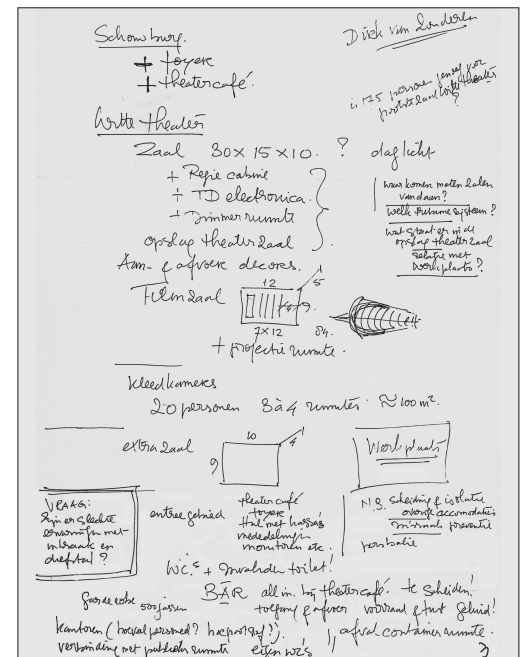 Schouwburg.
Dick van Sinderen
+ foyer
+ theatercafé.
is 175 personen genoeg voor
grootste zaal Witte theater
?
Witte theater
Zaal 30 x 15 x 10. ? daglicht
+ Regie cabine
+ TD electronica.
+ Dimmer ruimte
opslag theaterzaal
waar komen maten zalen
vandaan?
welk tribune systeem?
wat staat er in de
opslag theaterzaal
relatie met
werkplaats?
Aan- & afvoer decors.
Filmzaal
12
5
7x12
84.
+ projectie ruimte.
Kleedkamers
20 personen 3 à 4 ruimtes ≈ 100 m².
extra zaal
10
9
4
Werkplaats
VRAAG:
Zijn er slechte
ervaringen met
inbraak en
diefstal?
entree gebied
theater café
foyer
Hal met kassa's
mededelingen
monitoren etc.
N.B. Scheiding & isolatie
overige accomodaties
preventie
W.C.'s + Invaliden toilet!
BAR all in. bij theatercafé. te scheiden!
garderobe 500 jassen
toegang & afvoer voorraad & fust geluid!
kantoren (hoeveel personeel?
afval container ruimte.
verbinding met publieke ruimte eigen wc's
3